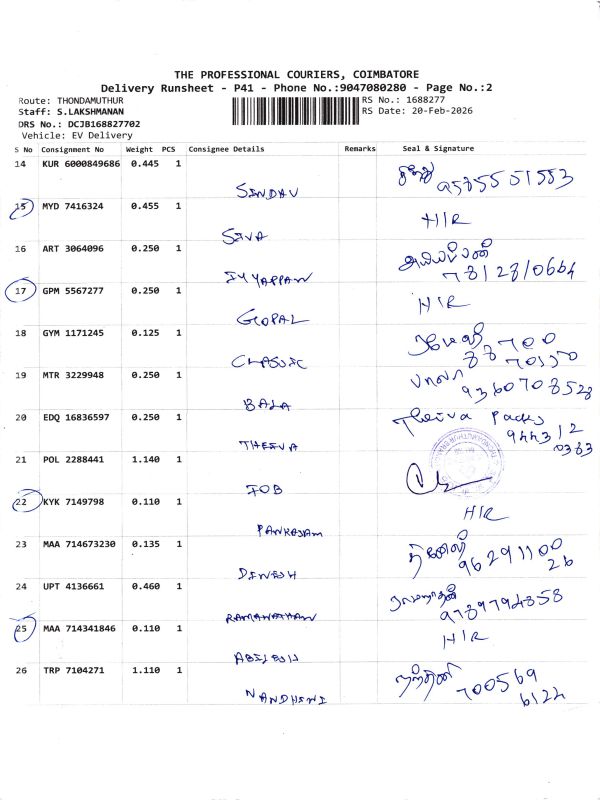 THE PROFESSIONAL COURIERS, COIMBATORE
Delivery Runsheet - P41 - Phone No.:9047080280 - Page No.:2
Route: THONDAMUTHUR
RS No.: 1688277
Staff: S.LAKSHMANAN
RS Date: 20-Feb-2026
DRS No.: DCJB168827702
Vehicle: EV Delivery
S No Consignment No Weight PCS Consignee Details Remarks Seal & Signature
14 KUR 6000849686 0.445 1
SINDHU 9585551553
15 MYD 7416324 0.455 1
SIVA H/R
16 ART 3064096 0.250 1
IYYAPPAN 7812810664
17 GPM 5567277 0.250 1
GOPAL H/R
18 GYM 1171245 0.125 1
CLASSIC
19 MTR 3229948 0.250 1
BALA பாலா 9360708528
20 EDQ 16836597 0.250 1
THEIVA Theiva Packs 944312 0383
21 POL 2288441 1.140 1
JOB
22 KYK 7149798 0.110 1
PANKAJAM H/R
23 MAA 714673230 0.135 1
DINESH 96291100 26
24 UPT 4136661 0.460 1
RAMANATHAN 9789794858
25 MAA 714341846 0.110 1
H/R
26 TRP 7104271 1.110 1
NANDHINI நந்தினி 700569 6122